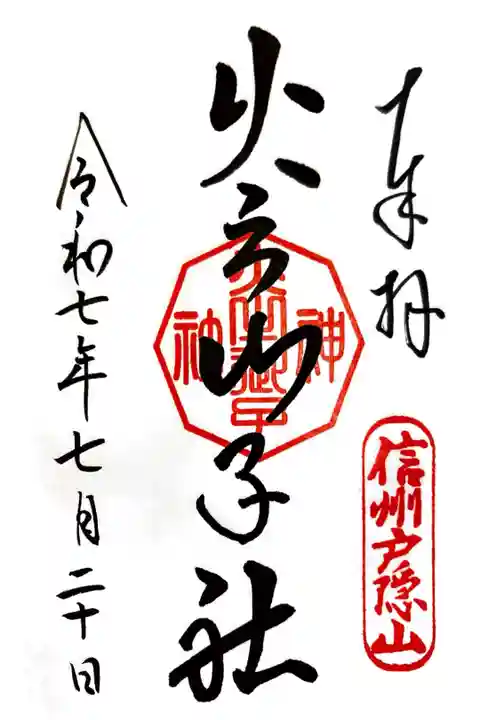 奉拝
信州戸隠山
火之御子社
神社
令和七年七月二十日